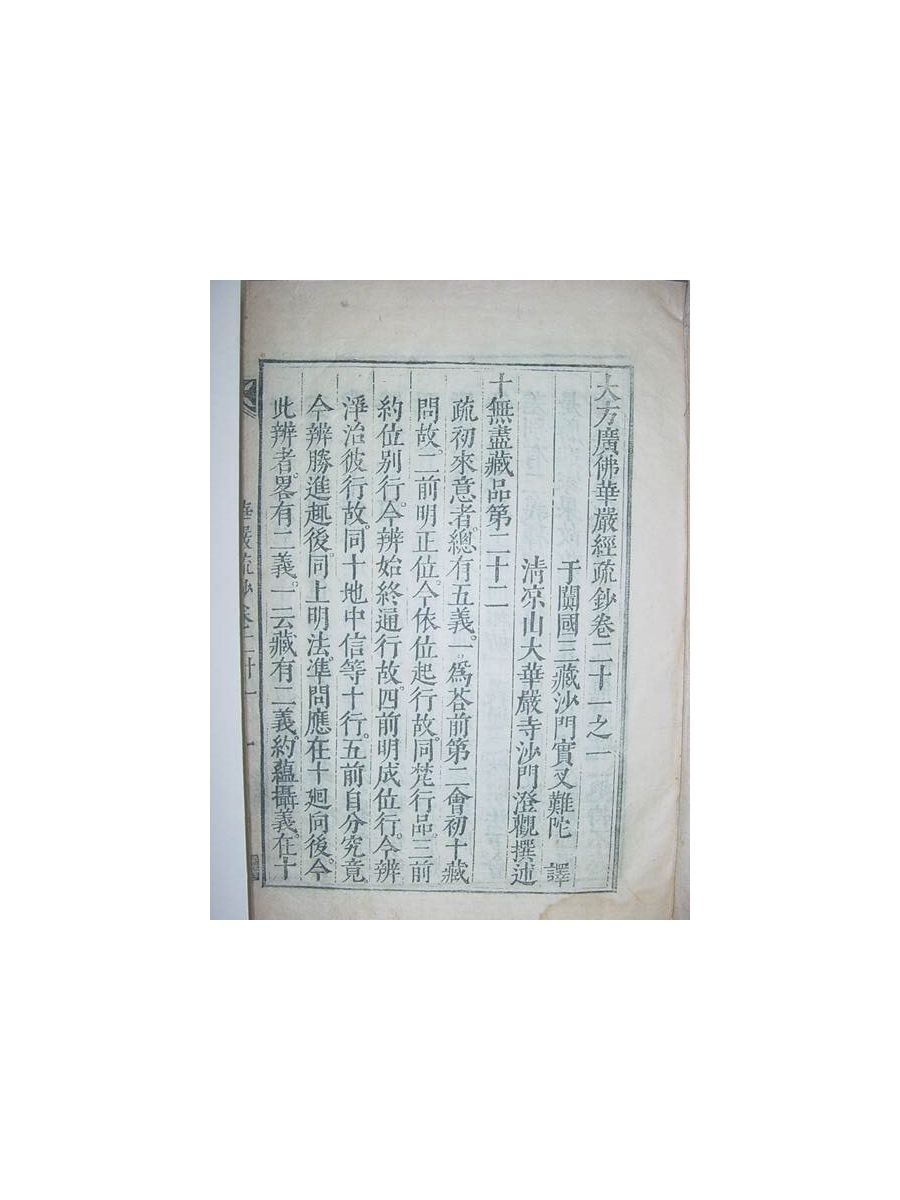 大方廣佛華嚴經疏鈔卷二十一之一
于闐國三藏沙門實叉難陀 譯
清凉山大華嚴寺沙門澄觀撰述
十無盡藏品第二十二
疏初來意者。總有五義。一爲荅前第二會初十藏
問故。二前明正位。今依位起行故。同梵行品。三前
約位别行。今辨始終通行故。四前明成位行。今辨
淨治彼行故。同十地中信等十行。五前自分究竟
今辨勝進趣後。同上明法。準問應在十迴向後。今
此辨者。畧有二義。一云藏有二義。約蘊攝義。在十
華嚴疏鈔卷二十一 一